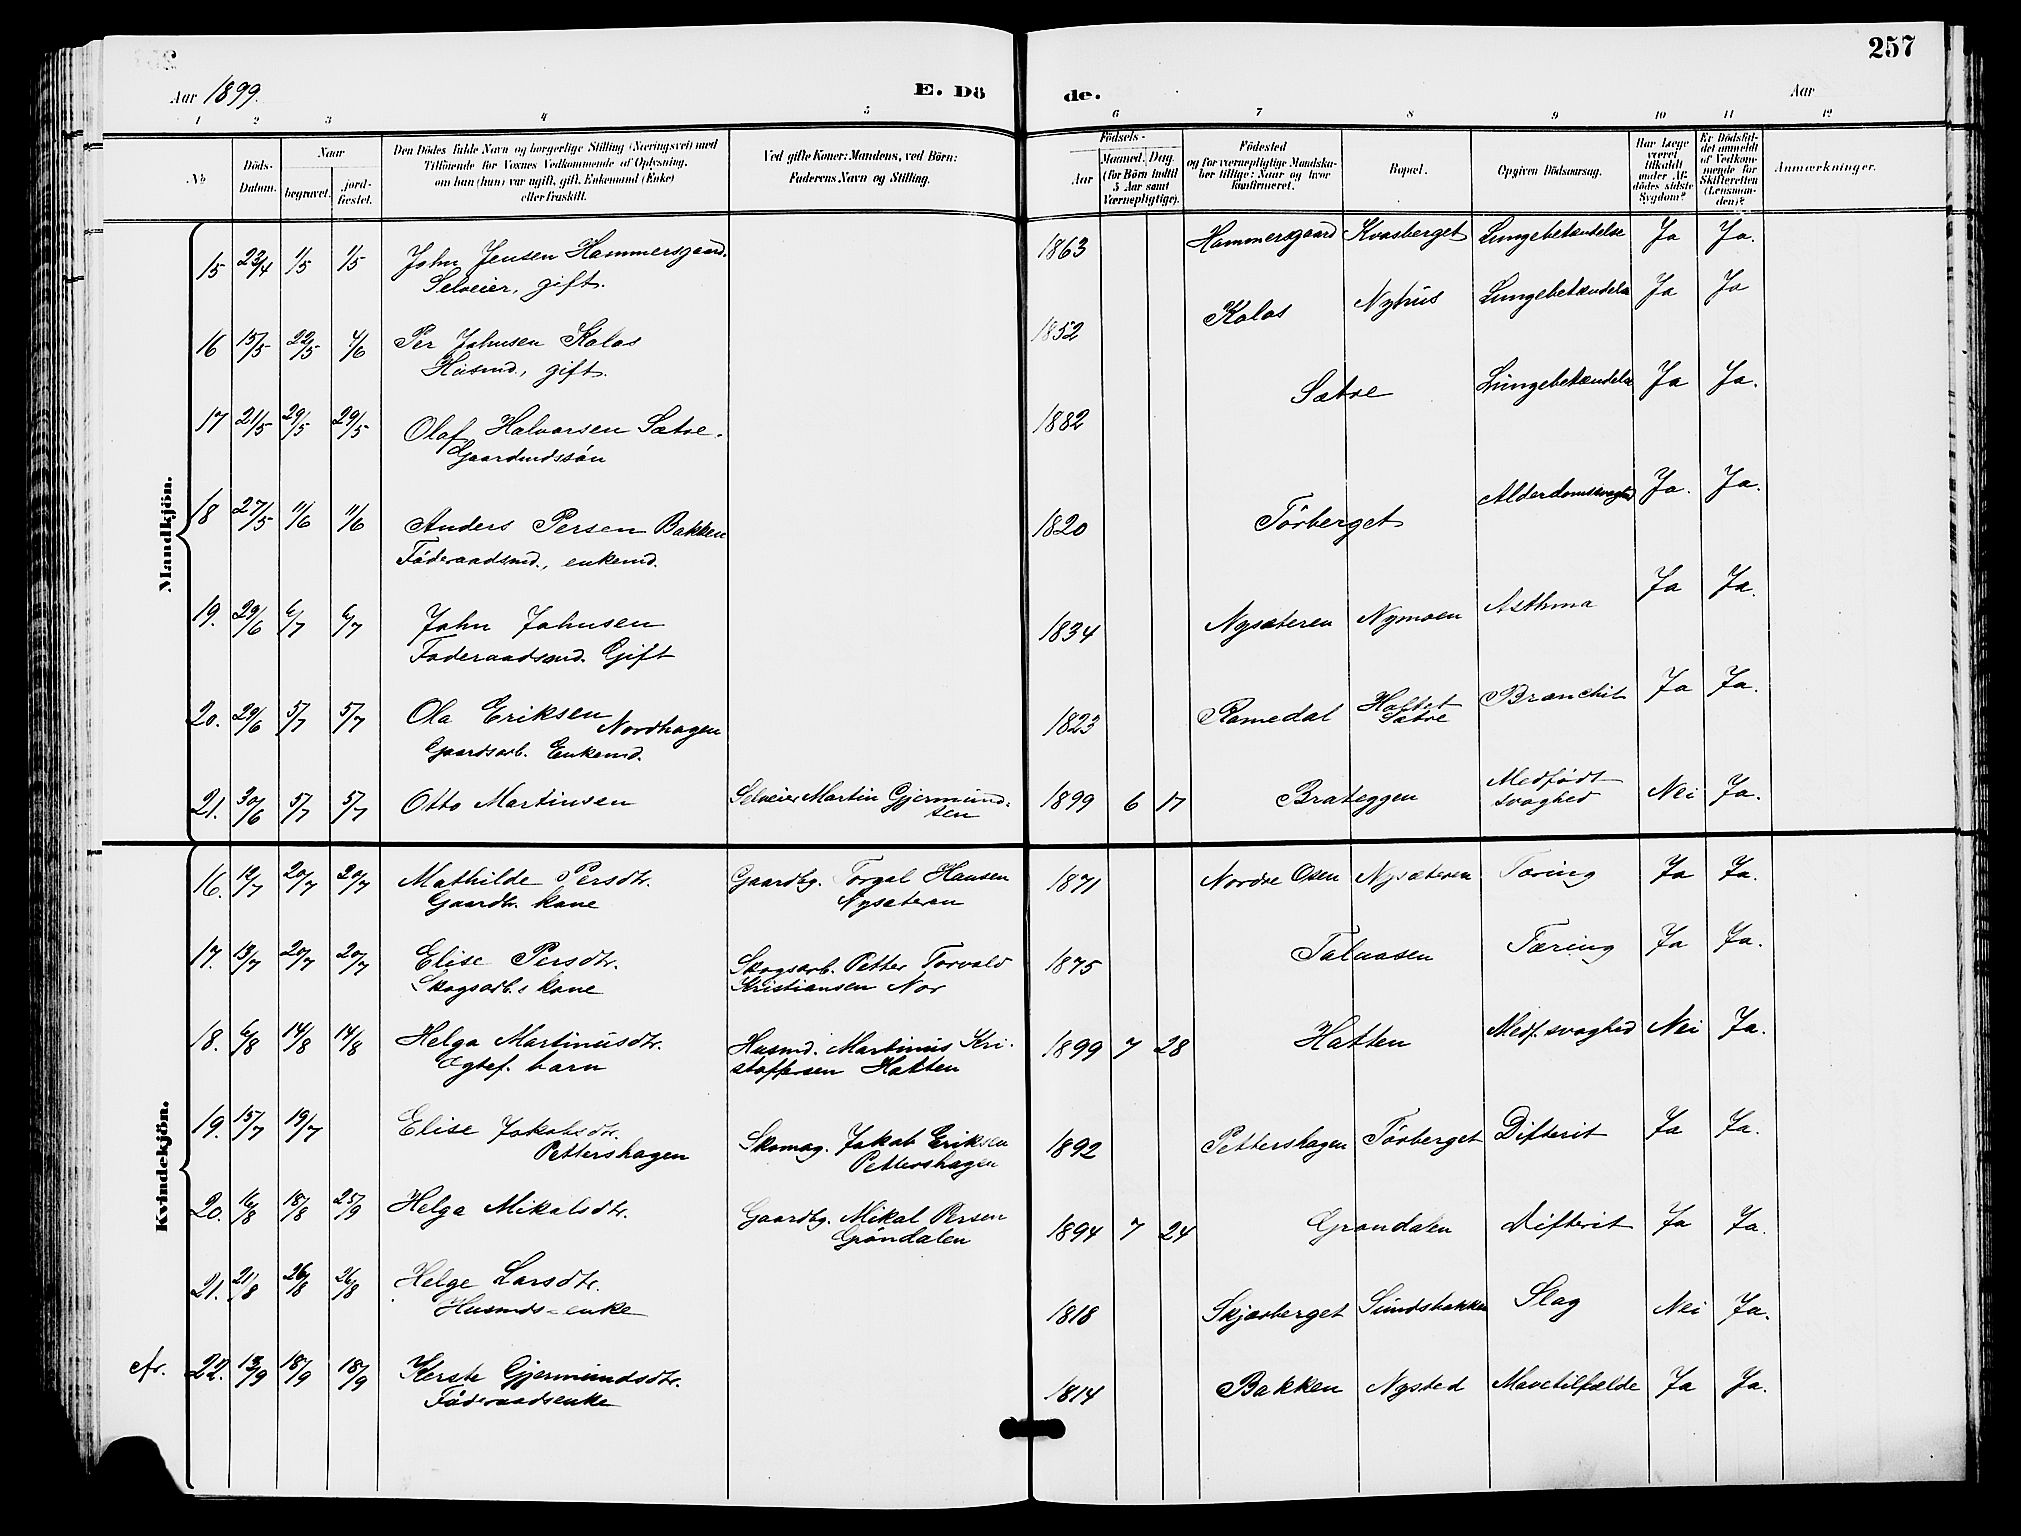 257
Aar 1899.
E. Dö
de.
Aar
1 2 3 4 5 6 7 8 9 10 11 12
№
Döds-
Datum.
Naar
begravet.
jord-
fæstet.
Den Dödes fulde Navn og borgerlige Stilling (Næringsvei) med
Tilföiende for Voxnes Vedkommende af Oplysning,
om han (hun) var ugift, gift, Enkemand (Enke)
eller fraskilt.
Ved gifte Koner: Mandens, ved Börn:
Faderens Navn og Stilling.
Födsels-
Aar
Maaned. Dag.
(for Börn indtil
5 Aar samt
Værnepligtige).
Födested
og for værnepligtige Mandska-
ber tillige: Naar og hvor
konfirmeret.
Bopæl.
Opgiven Dödsaarsag.
Har Læge
været
tilkaldt
under Af-
dödes sidste
Sygdom?
Er Dödsfal-
det anmeldt
af Vedkom-
mende for
Skifteretten
(Lensman-
den)?
Anmærkninger.
Mandkjön.
15 23/4 1/5 1/5 John Jensen Hammersgaard. 1863 Hammersgaard Kvasberget Lungebetændelse Ja Ja.
Selveier, gift.
16 15/5 22/5 4/6 Per Johnsen Kolos 1852 Kolos Nyhus Lungebetændelse Ja Ja
Husmd., gift.
17 21/5 29/5 29/5 Olaf Halvorsen Sætre. 1882 Sætre Lungebetændelse Ja Ja.
Gaardmdssön
18 27/5 11/6 11/6 Anders Persen Bakken 1820 Törberget Alderdomssvaghed Ja. Ja.
Föderaadsmd., enkemd.
19. 29/6 6/7 6/7 John Johnsen 1834 Nysæteren Nymoen Asthma Ja Ja.
Föderaadsmd. Gift
20. 29/6 5/7 5/7 Ola Eriksen Nordhagen 1823 Romedal Hottet Sætre Bronchit Ja Ja.
Gaardsarb. Enkemd.
21. 30/6 5/7 5/7 Otto Martinsen Selveier Martin Gjermund- 1899 6 17 Brateggen Medfödt Nei Ja.
sen svaghed
Kvindekjön.
16. 12/7 20/7 20/7 Mathilde Persdtr. Gaardbg. Torgal Hansen 1871 Nordre Osen Nysæteren Tæring Ja Ja.
Gaardbr. kone Nysæteren
17. 13/7 20/7 20/7 Elise Persdtr. Skogsarb. Petter Torvald 1875 Talaasen Tæring Ja Ja.
Skogsarb.s kone Kristiansen Nor
18. 6/8 14/8 14/8 Helga Martinusdtr. Husmd. Martinus Kri- 1899 7 28 Hatten Medf. svaghed Nei Ja.
Ægtef. barn stoffersen Hatten
19. 15/7 19/7 Elise Jakobsdtr. Skomag. Jakob Eriksen 1892 Pettershagen Törberget Difterit Ja Ja.
Pettershagen Pettershagen
20. 16/8 18/8 25/9 Helga Mikalsdtr. Gaardbg. Mikal Persen 1894 7 24 Gröndalen Difterit Ja Ja.
Gröndalen
21. 21/8 26/8 26/8 Helge Larsdtr. 1818 Skjærberget Sundsbakken Slag Nei Ja.
Husmds-enke
22. 13/9 18/9 18/9 Kerste Gjermundsdtr. 1814 Bakken Nysted Mavetilfælde Ja Ja.
Föderaadsenke